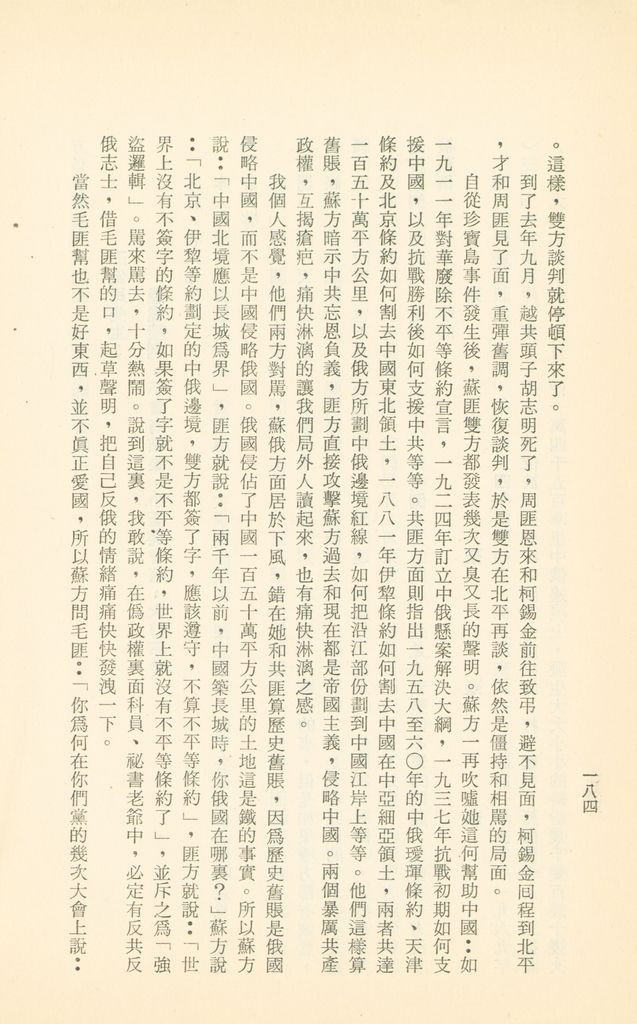 。這樣，雙方談判就停頓下來了。
到了去年九月，越共頭子胡志明死了，周匪恩來和柯錫金前往致弔，避不見面，柯錫金囘程到北平
，才和周匪見了面，重彈舊調，恢復談判，於是雙方在北平再談，依然是僵持和相駡的局面。
自從珍寶島事件發生後，蘇匪雙方都發表幾次又臭又長的聲明。蘇方一再吹噓她這何幫助中國：如
一九一一年對華廢除不平等條約宣言，一九二四年訂立中俄懸案解決大綱，一九三七年抗戰初期如何支
援中國，以及抗戰勝利後如何支援中共等等。共匪方面則指出一九五八至六〇年的中俄璦琿條約、天津
條約及北京條約如何割去中國東北領土，一八八一年伊犂條約如何割去中國在中亞細亞領土，兩者共達
一百五十萬平方公里，以及俄方所劃中俄邊境紅線，如何把沿江部份劃到中國江岸上等等。他們這樣算
舊賬，蘇方暗示中共忘恩負義，匪方直接攻擊蘇方過去和現在都是帝國主義，侵略中國。兩個暴厲共產
政權，互揭瘡疤，痛快淋漓的讓我們局外人讀起來，也有痛快淋漓之感。
我個人感覺，他們兩方對駡，蘇俄方面居於下風，錯在她和共匪算歷史舊賬，因爲歷史舊賬是俄國
侵略中國，而不是中國侵略俄國。俄國侵佔了中國一百五十萬平方公里的土地這是鐵的事實。所以蘇方
說：「中國北境應以長城爲界」，匪方就說：「兩千年以前，中國築長城時，你俄國在哪裏？」蘇方說
：「北京、伊犂等約劃定的中俄邊境，雙方都簽了字，應該遵守，不算不平等條約」，匪方就說：「世
界上沒有不簽字的條約，如果簽了字就不是不平等條約，世界上就沒有不平等條約了」，並斥之爲「強
盜邏輯」。駡來駡去，十分熱鬧。說到這裏，我敢說，在僞政權裏面科員、祕書老爺中，必定有反共反
俄志士，借毛匪幫的口，起草聲明，把自己反俄的情緒痛痛快快發洩一下。
當然毛匪幫也不是好東西，並不眞正愛國，所以蘇方問毛匪：「你爲何在你們黨的幾次大會上說：
一八四